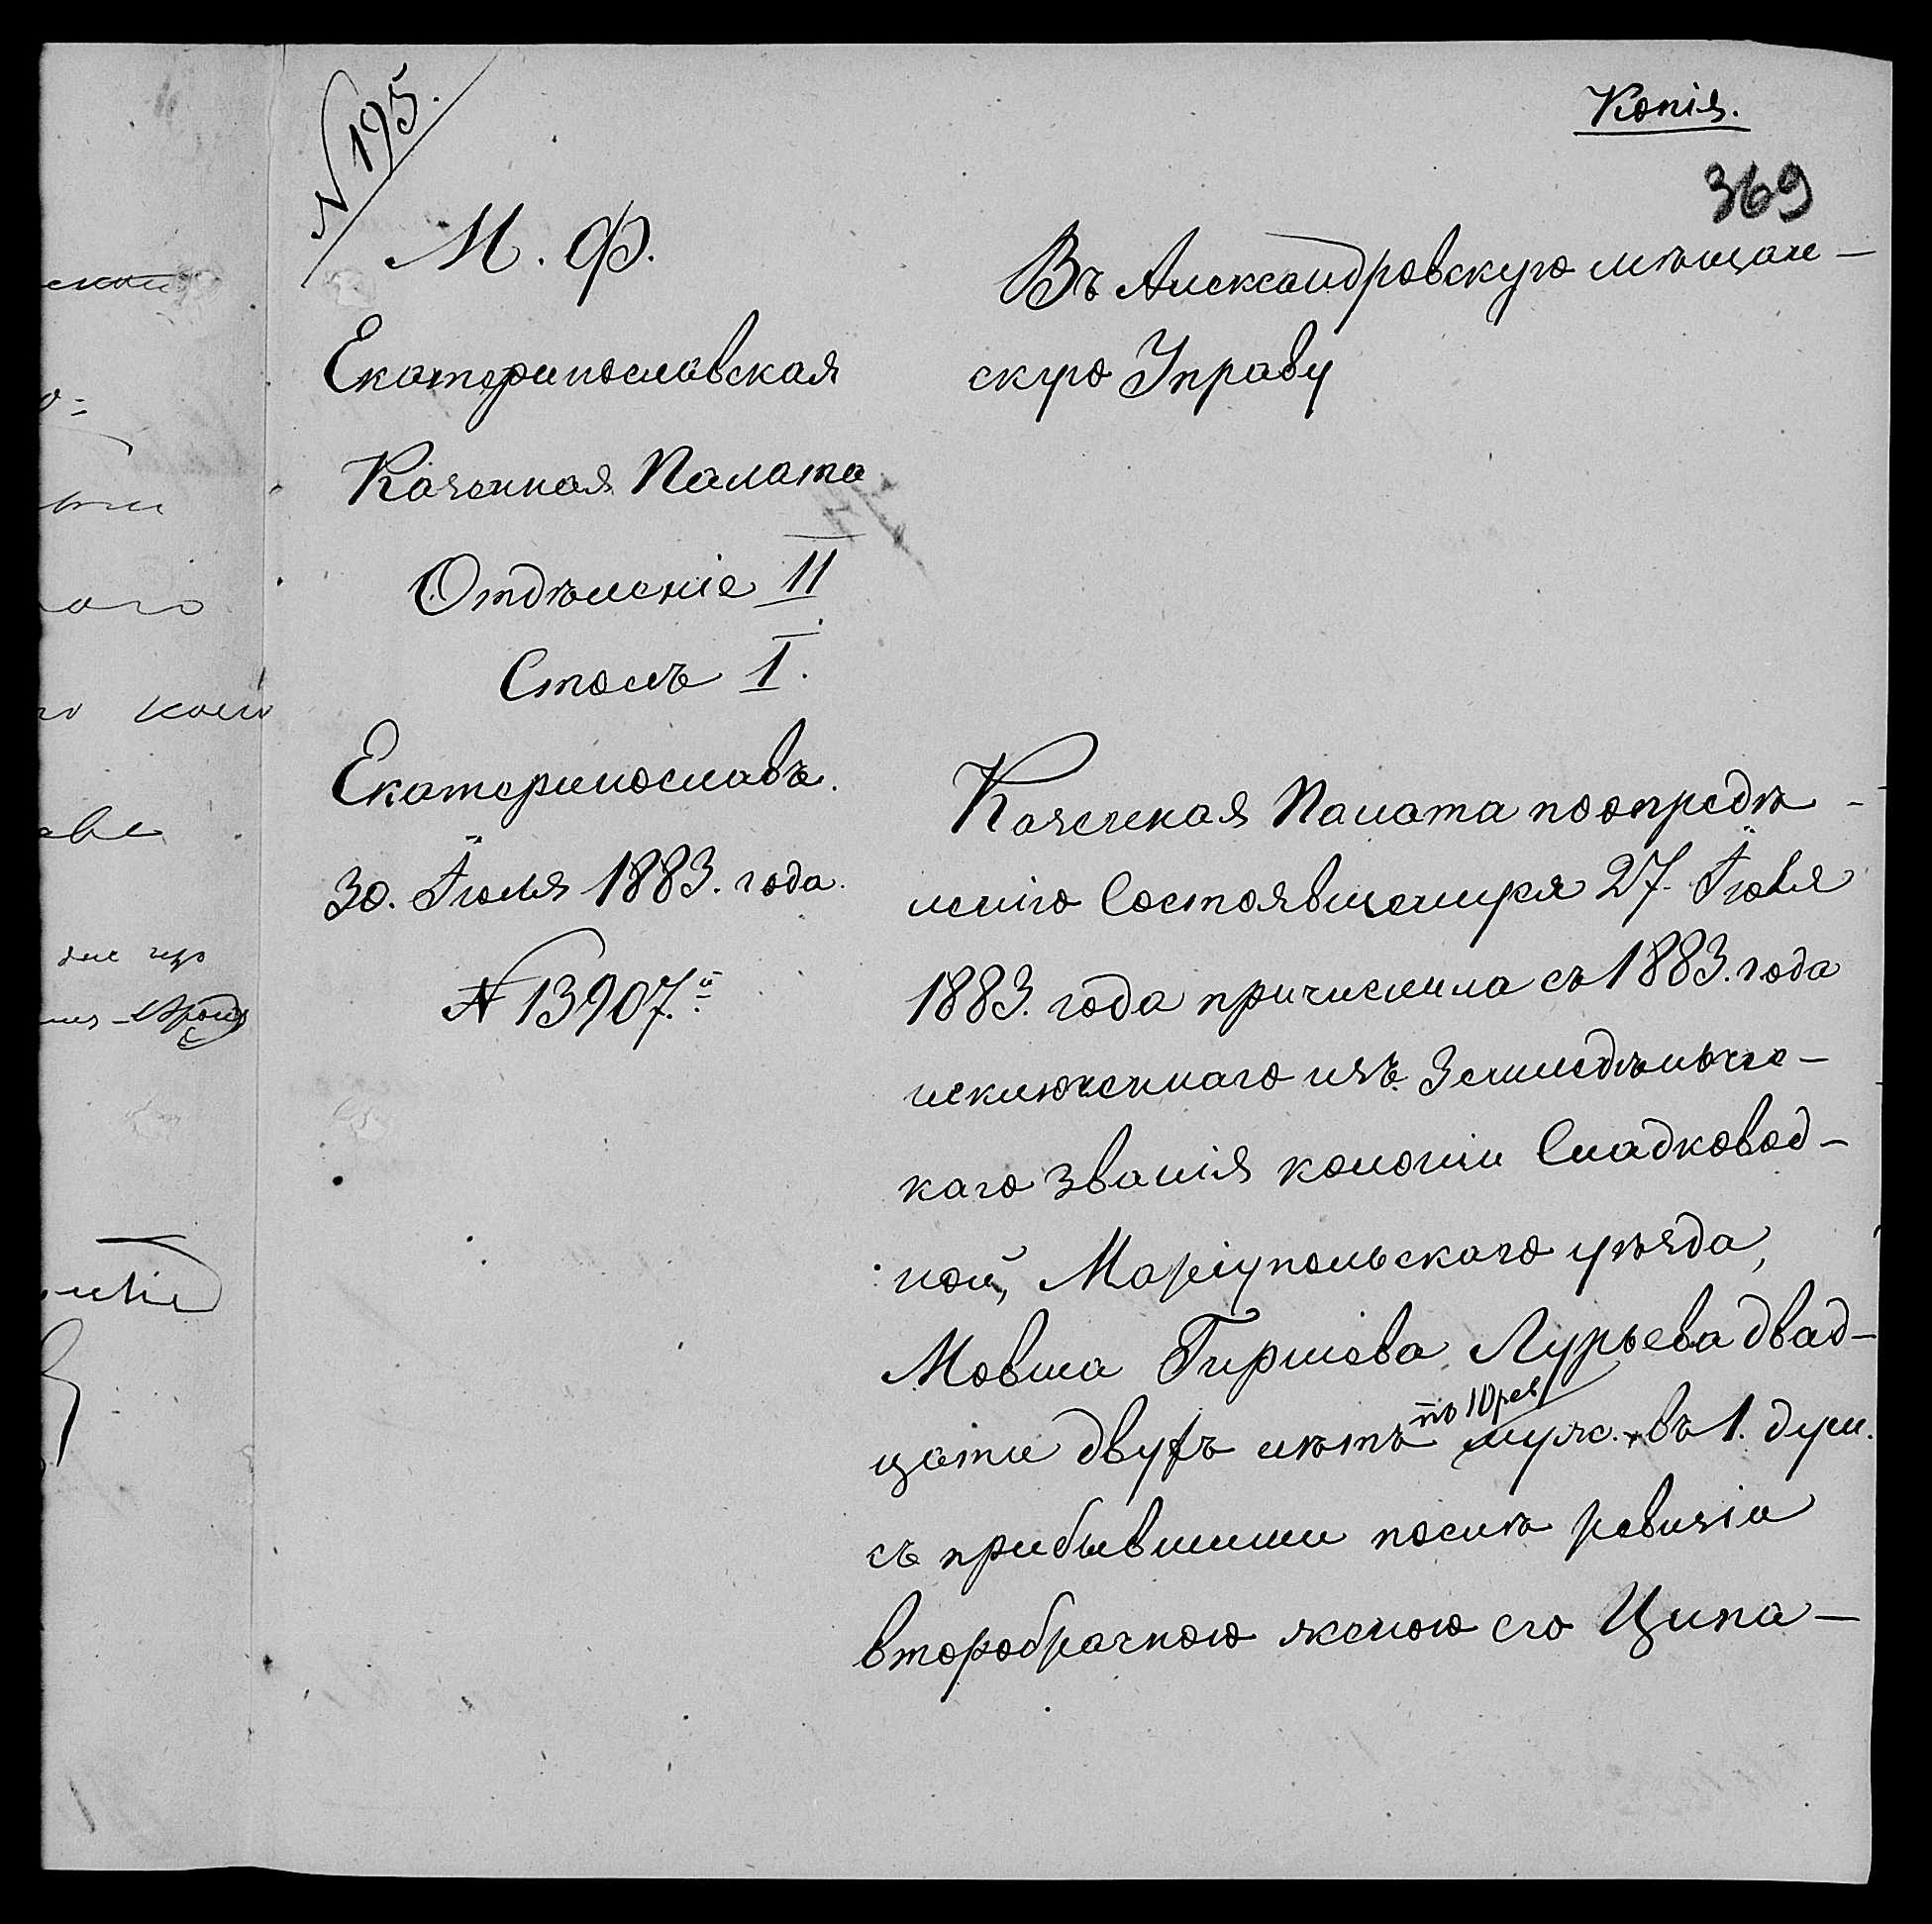 № 195.
Копія.
369
М. Ф.
Екатеринославская
Казенная Палата
Отдѣленіе II
Столъ I.
Екатеринославъ.
30. Іюля 1883. года.
№ 13907.й
Въ Александровскую мѣщан-
скую Управу
Казенная Палата по опредѣ-
ленію состоявшемуся 27. Іюля
1883. года причислила съ 1883. года
исключеннаго изъ Земледѣльчес-
каго званія колоніи Сладковод-
ной, Маріупольскаго уѣзда,
Мовша Гиршова Лурьева двад-
цати двухъ лѣтъ по 10 рев. муж. въ 1. душ.
съ прибывшими послѣ ревизіи
второбрачною женою его Ципа-